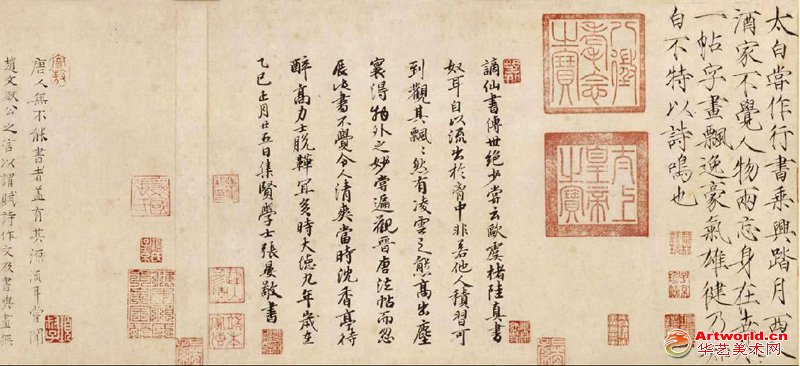 太白嘗作行書乘興踏月西入
酒家不覺人物兩忘身在世
一帖字畫飄逸豪氣雄健乃
白不特以詩鳴也
八徵
耄念
之寶
太上
皇帝
之寶
謫仙書傳世絕少嘗云歐虞褚陸真書
奴耳自以流出於胷中非若他人積習可
到觀其飄〻然有凌雲之態高出塵
寰得物外之妙嘗遍觀晉唐法帖而忽
展此書不覺令人清爽當時沈香亭待
醉高力士脫鞾冝矣時大德九年歲在
乙巳正月廿五日集賢學士張晏敬書
唐人無不能書者蓋有其源流耳嘗聞
趙文敏公之言以謂賦詩作文及書與畫無
Artworld.cn
华艺美术网